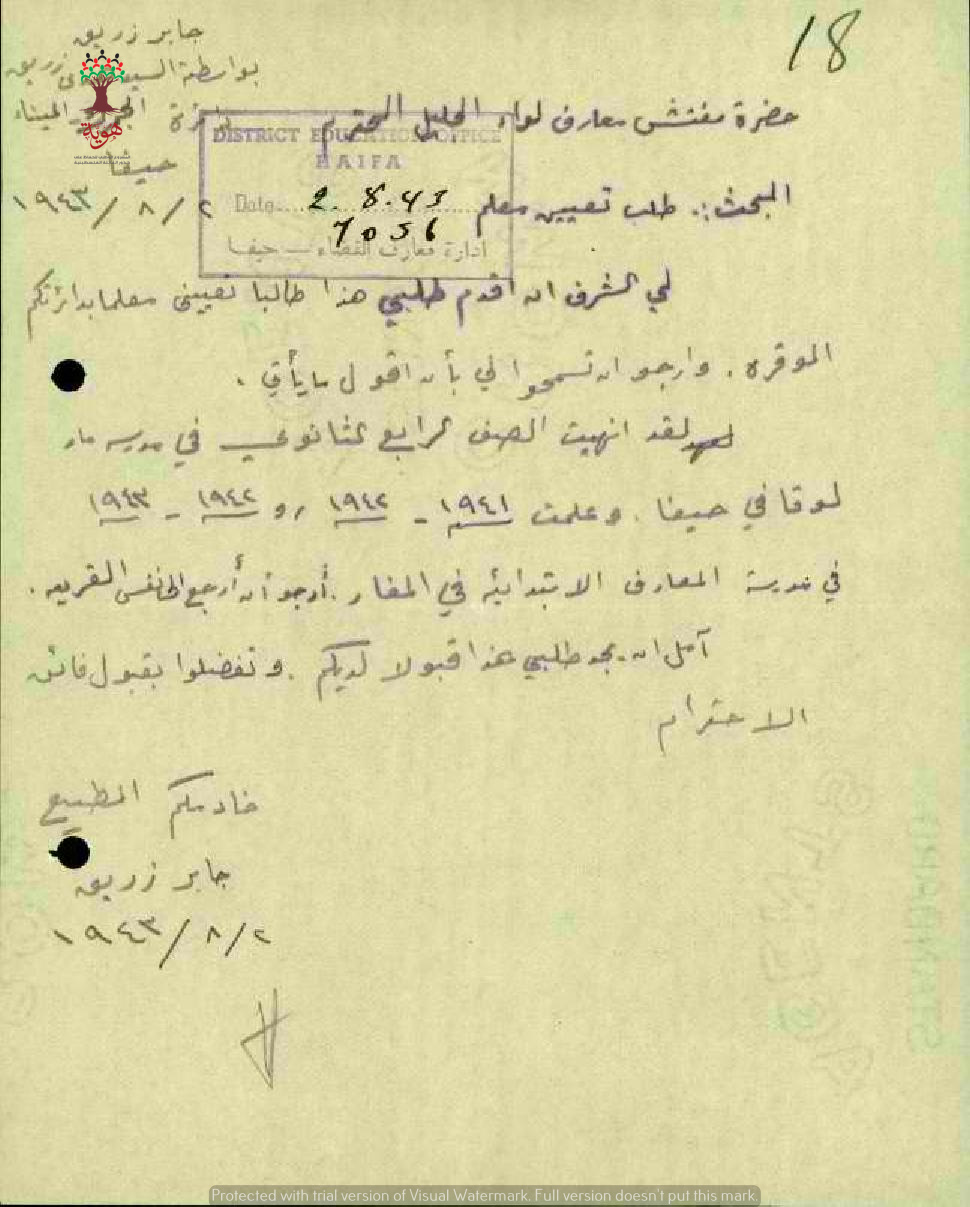 18
جابر زريق
بواسطة السيد زريق
دائرة الجمرك الميناء
حيفا
٢ / ٨ / ١٩٤٣
حضرة مفتش معارف لواء الجليل المحترم
DISTRICT EDUCATION OFFICE
HAIFA
Date 2.8.43
7056
ادارة معارف القضاء — حيفا
البحث :. طلب تعيين معلم
لي الشرف ان اقدم طلبي هذا طالبا تعييني معلما بدائرتكم
الموقره . وارجو ان تسمحوا لي بأن اقول ما يأتي .
لقد انهيت الصف الرابع الثانوي في مدرسه مار
لوقا في حيفا . وعلمت ١٩٤١ - ١٩٤٢ , و ١٩٤٢ - ١٩٤٣
في مدرسة المعارف الابتدائيه في المغار . أرجو أن أرجع الى نفس القريه .
آمل ان يجد طلبي هذا قبولا لديكم . وتفضلوا بقبول فائق
الاحترام
خادمكم المطيع
جابر زريق
٢ / ٨ / ١٩٤٣
هوية
Protected with trial version of Visual Watermark. Full version doesn't put this mark.